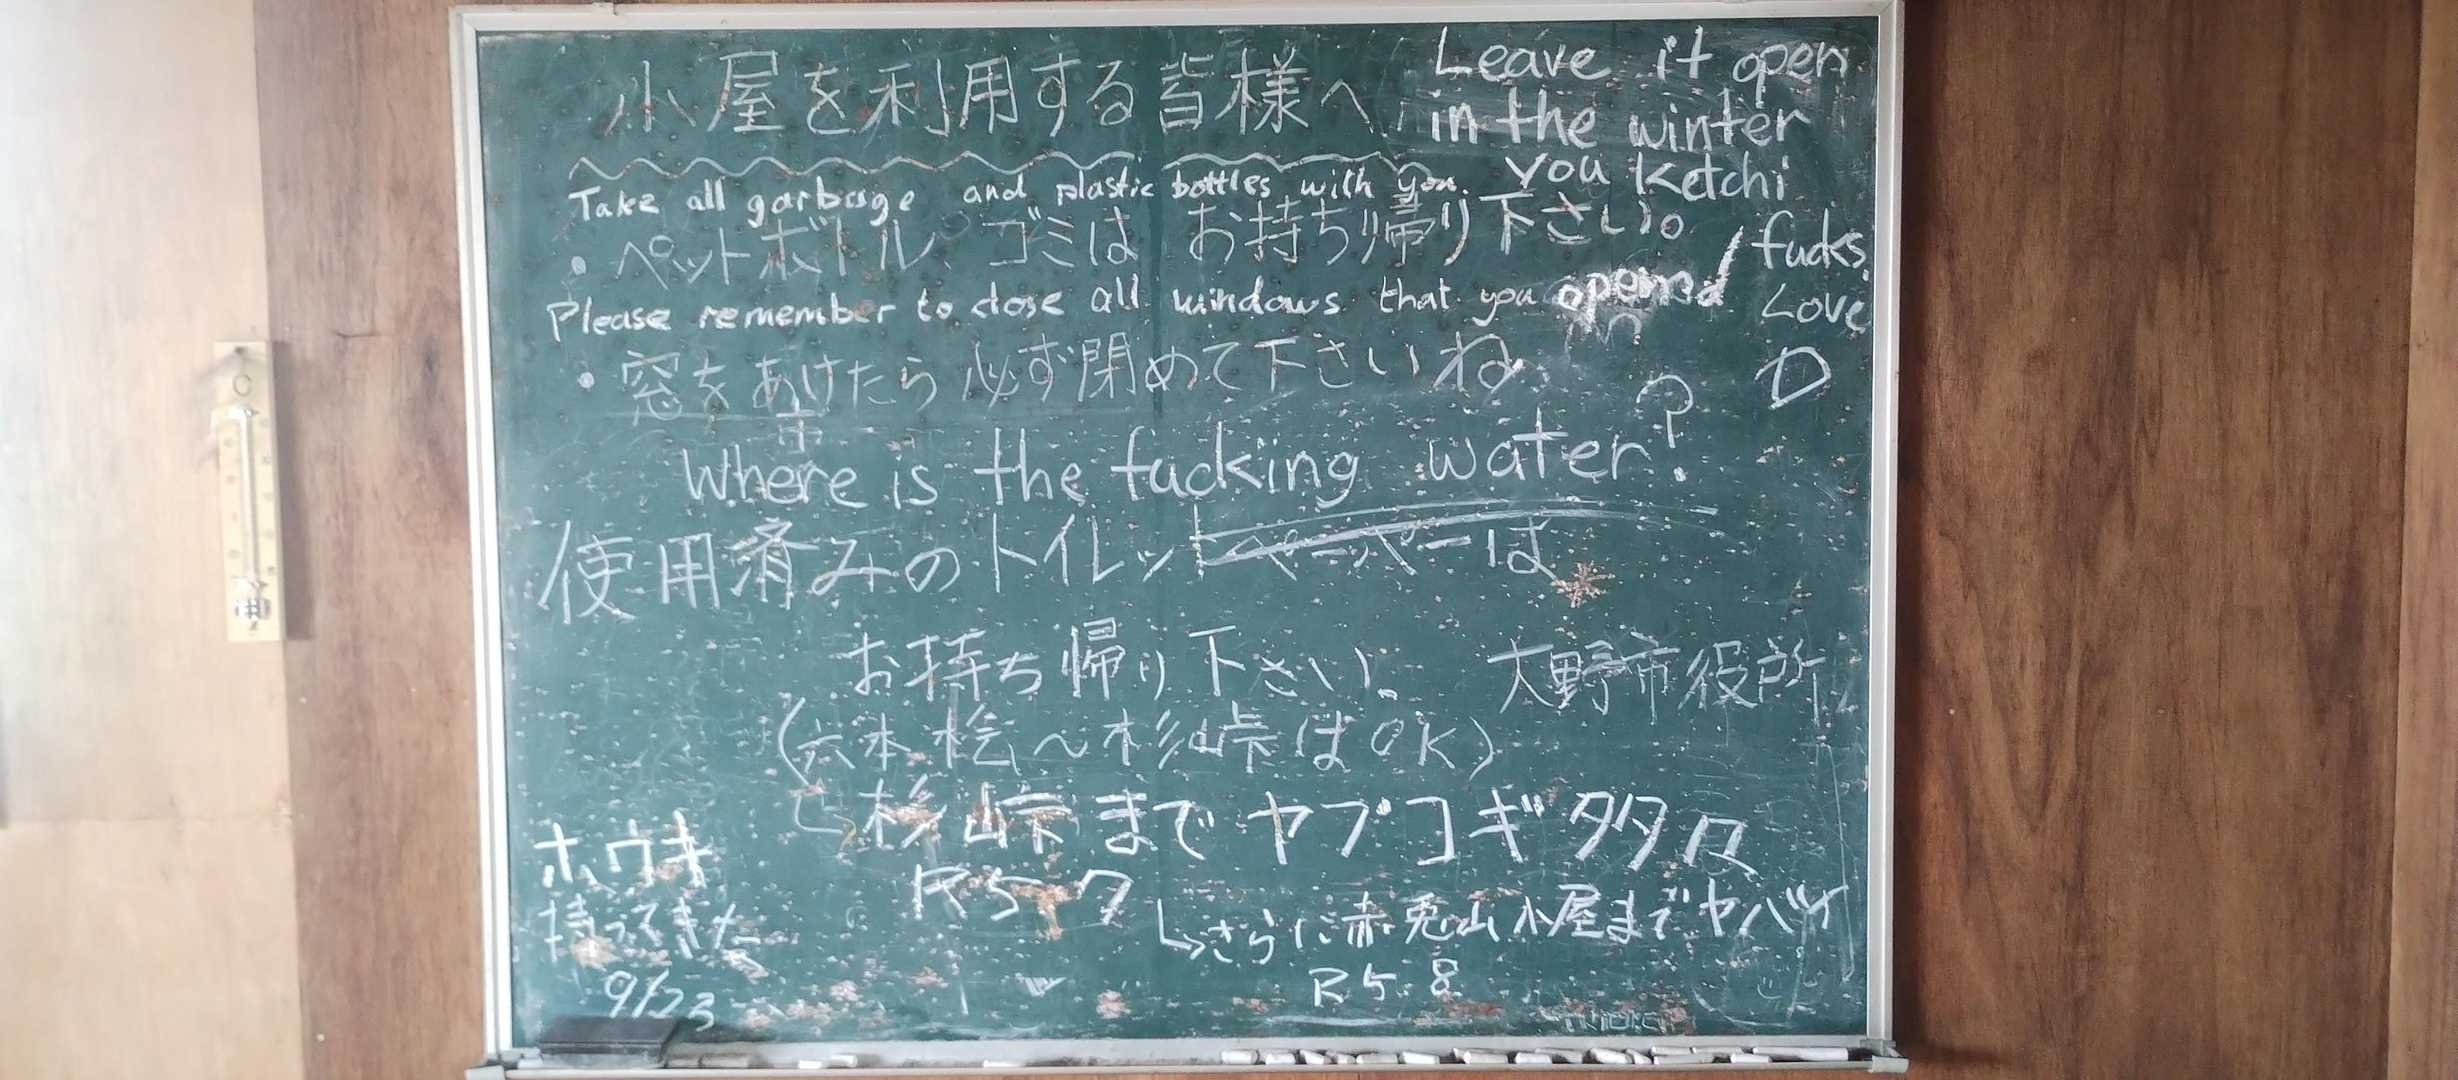 小屋を利用する皆様へ
Leave it open
in the winter
you Ketchi
fucks.
Love
D
Take all garbage and plastic bottles with you.
・ペットボトル、ゴミは お持ち帰り下さい。
Please remember to close all windows that you opened
・窓をあけたら必ず閉めて下さいね
Where is the fucking water?
使用済みのトイレットペーパーは
お持ち帰り下さい。
大野市役所
(六本桧〜杉峠はOK)
杉峠までヤブコギ多夕
R5 7
↳さらに赤兎山小屋までヤバイ
R5.8
ホウキ
持ってきた
9/23